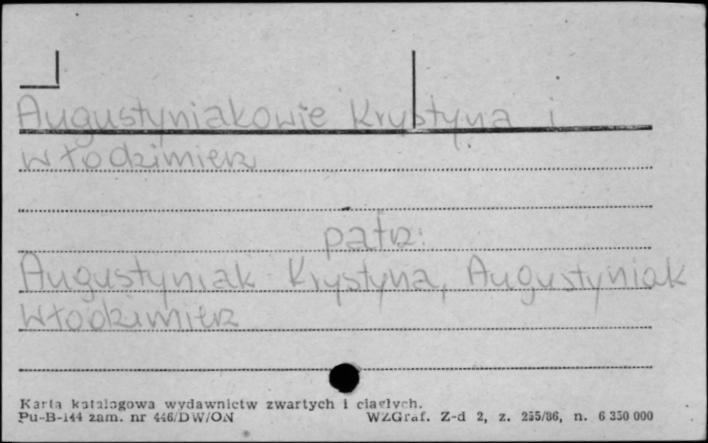 Augustyniakowie Krystyna i
Włodzimierz
patrz:
Augustyniak Krystyna, Augustyniak
Włodzimierz
Karta katalogowa wydawnictw zwartych i ciągłych.
Pu-B-144 zam. nr 446/DW/ON WZGraf. Z-d 2, z. 255/86, n. 6 350 000